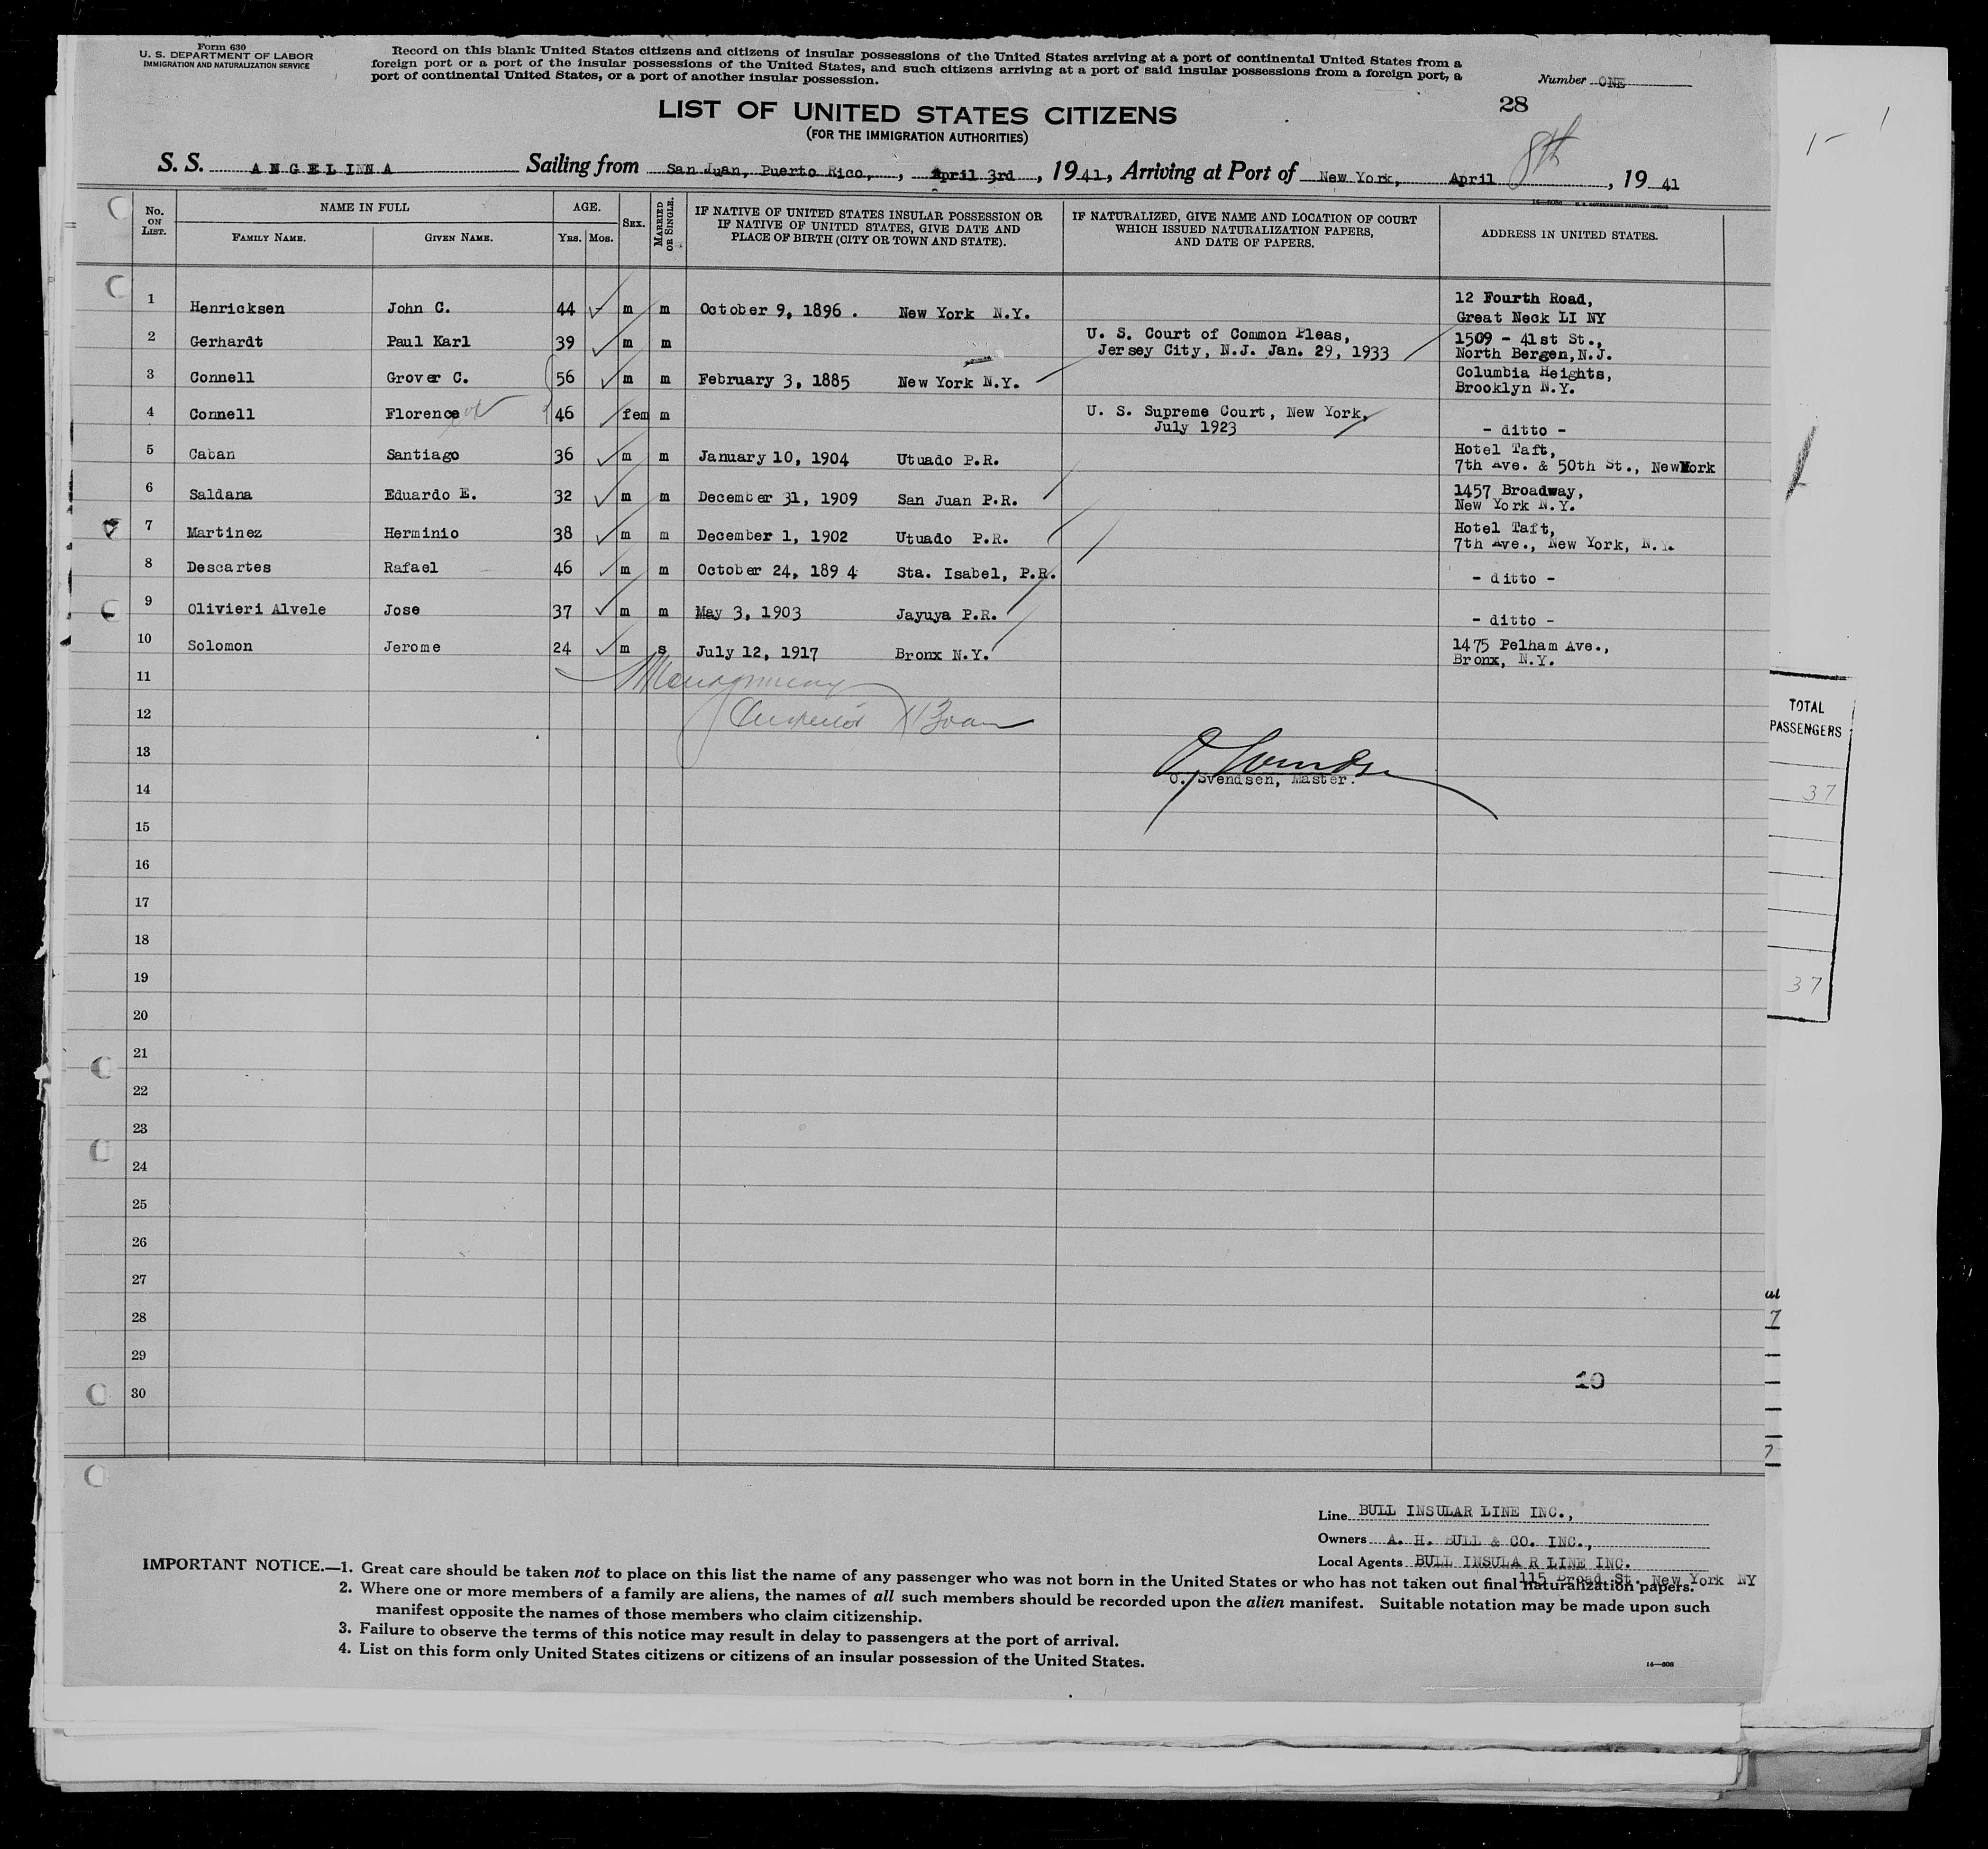 Form 630
U. S. DEPARTMENT OF LABOR
IMMIGRATION AND NATURALIZATION SERVICE
Record on this blank United States citizens and citizens of insular possessions of the United States arriving at a port of continental United States from a
foreign port or a port of the insular possessions of the United States, and such citizens arriving at a port of said insular possessions from a foreign port, a
port of continental United States, or a port of another insular possession.
Number ONE
28
LIST OF UNITED STATES CITIZENS
(FOR THE IMMIGRATION AUTHORITIES)
S. S. ANGELINA Sailing from San Juan, Puerto Rico, , April 3rd , 1941, Arriving at Port of New York, April 8th , 19 41
No. ON LIST. NAME IN FULL AGE. SEX. MARRIED OR SINGLE. IF NATIVE OF UNITED STATES INSULAR POSSESSION OR IF NATIVE OF UNITED STATES, GIVE DATE AND PLACE OF BIRTH (CITY OR TOWN AND STATE). IF NATURALIZED, GIVE NAME AND LOCATION OF COURT WHICH ISSUED NATURALIZATION PAPERS, AND DATE OF PAPERS. ADDRESS IN UNITED STATES.
FAMILY NAME. GIVEN NAME. YRS. MOS.
1 Henricksen John C. 44 m m October 9, 1896 . New York N.Y. 12 Fourth Road,
Great Neck LI NY
2 Gerhardt Paul Karl 39 m m U. S. Court of Common Pleas, 1509 - 41st St.,
Jersey City, N.J. Jan. 29, 1933 North Bergen,N.J.
3 Connell Grover C. 56 m m February 3, 1885 New York N.Y. Columbia Heights,
Brooklyn N.Y.
4 Connell Florence 46 fem m U. S. Supreme Court, New York,
July 1923 - ditto -
5 Caban Santiago 36 m m January 10, 1904 Utuado P.R. Hotel Taft,
7th Ave. & 50th St., New York
6 Saldana Eduardo E. 32 m m December 31, 1909 San Juan P.R. 1457 Broadway,
New York N.Y.
7 Martinez Herminio 38 m m December 1, 1902 Utuado P.R. Hotel Taft,
7th Ave., New York, N.Y.
8 Descartes Rafael 46 m m October 24, 189 4 Sta. Isabel, P.R. - ditto -
9 Olivieri Alvele Jose 37 m m May 3, 1903 Jayuya P.R. - ditto -
10 Solomon Jerome 24 m s July 12, 1917 Bronx N.Y. 1475 Pelham Ave.,
Bronx, N.Y.
11
12
13
O. Svendsen, Master.
14
15
16
17
18
19
20
21
22
23
24
25
26
27
28
29
30
10
TOTAL
PASSENGERS
37
37
Line BULL INSULAR LINE INC.,
Owners A. H. BULL & CO. INC.,
Local Agents BULL INSULA R LINE INC.
115 Broad St. New York NY
IMPORTANT NOTICE.—1. Great care should be taken not to place on this list the name of any passenger who was not born in the United States or who has not taken out final naturalization papers.
2. Where one or more members of a family are aliens, the names of all such members should be recorded upon the alien manifest. Suitable notation may be made upon such
manifest opposite the names of those members who claim citizenship.
3. Failure to observe the terms of this notice may result in delay to passengers at the port of arrival.
4. List on this form only United States citizens or citizens of an insular possession of the United States.
14—608